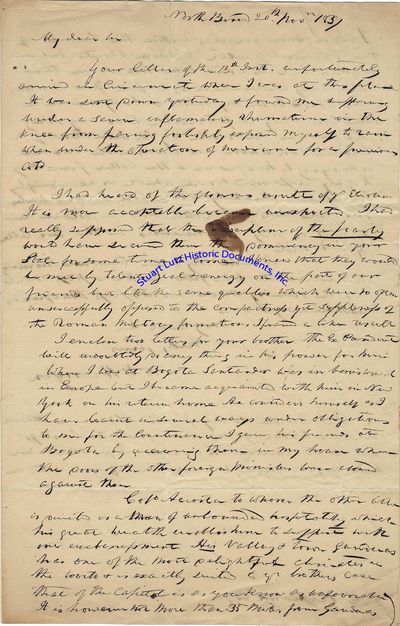 North Bend 20th Nov 1837
My dear Sir
Your letter of the 12th Inst. unfortunately
arrived in Cincinnati when I was at this place
It was sent down yesterday & found me suffering
under a severe inflammatory rheumatism in the
knee from having foolishly exposed myself to rain
when under the operation of medicine for a previous
cold
I had heard of the glorious result of yr Election
It is more acceptable because unexpected I had
really supposed that the discipline of the party
would have secured them the in your
State for some time to come that they would
be met by talents zeal & energy on the part of our
friends but like the same qualities which were so often
unsuccessfully opposed to the compactness yet suppleness of
the Roman Military formations a like result
I enclose two letters for your brother The Ex President
will undoubtedly do every thing in his power for him
When I was at Bogota Santander was in banishment
in Europe but I became acquainted with him in New
York on his return home He considers himself as I
have learnt in several ways under obligations
to me for the countenance I gave his friends at
Bogota by receiving them in my house when
the doors of the other foreign ministers were closed
against them
Colo Acosta to whom the other letter
is directed is a man of unbounded hospitality which
his great wealth enables him to support with
out embarrassment His Valley & town Guaduas
has one of the most delightful climates in
the world & is exactly suited to yr brothers case
that of the Capital is as you unfavourable
It is however not more than 35 miles from Guaduas
Stuart Lutz Historic Documents, Inc.